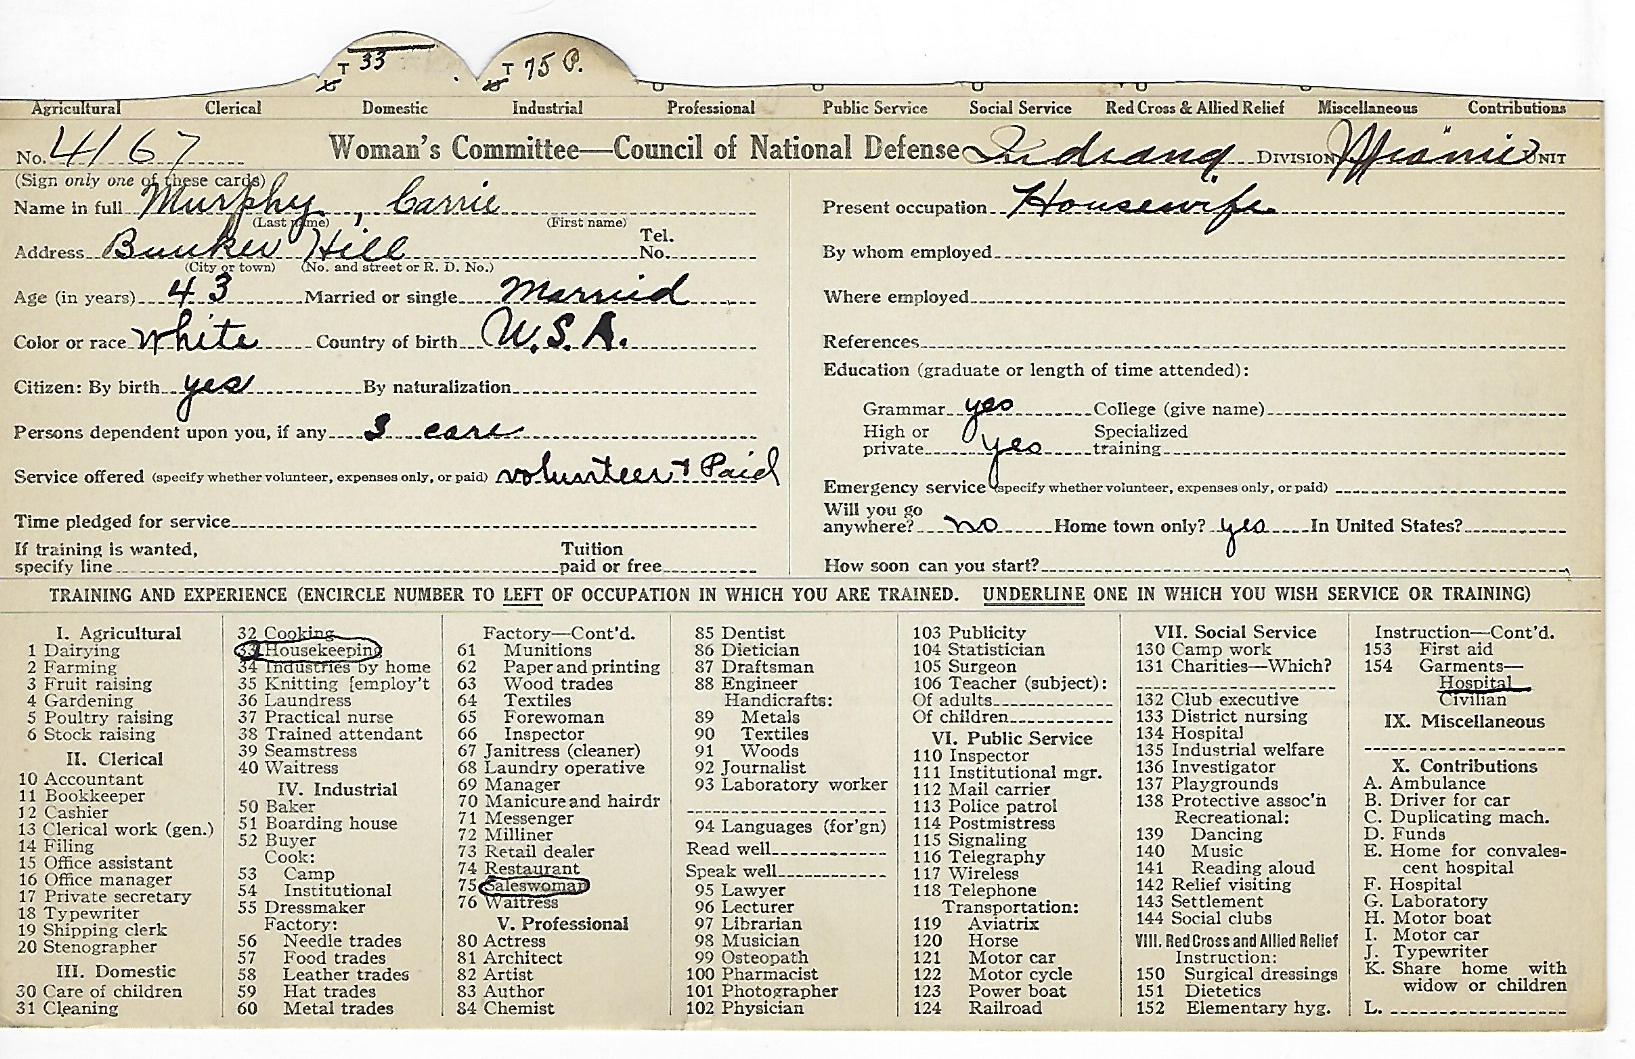 T 33 T 75 P.
Agricultural Clerical Domestic Industrial Professional Public Service Social Service Red Cross & Allied Relief Miscellaneous Contributions
No. 4167 Woman's Committee—Council of National Defense Indiana DIVISION Miami UNIT
(Sign only one of these cards)
Name in full Murphy, Carrie
(Last name) (First name)
Address Bunker Hill Tel. No.
(City or town) (No. and street or R. D. No.)
Age (in years) 43 Married or single Married
Color or race white Country of birth U.S.A.
Citizen: By birth yes By naturalization
Persons dependent upon you, if any 3 care
Service offered (specify whether volunteer, expenses only, or paid) volunteer + Paid
Time pledged for service
If training is wanted,
specify line Tuition paid or free
Present occupation Housewife
By whom employed
Where employed
References
Education (graduate or length of time attended):
Grammar yes College (give name)
High or private yes Specialized training
Emergency service (specify whether volunteer, expenses only, or paid)
Will you go
anywhere? no Home town only? yes In United States?
How soon can you start?
TRAINING AND EXPERIENCE (ENCIRCLE NUMBER TO LEFT OF OCCUPATION IN WHICH YOU ARE TRAINED. UNDERLINE ONE IN WHICH YOU WISH SERVICE OR TRAINING)
I. Agricultural
1 Dairying
2 Farming
3 Fruit raising
4 Gardening
5 Poultry raising
6 Stock raising
II. Clerical
10 Accountant
11 Bookkeeper
12 Cashier
13 Clerical work (gen.)
14 Filing
15 Office assistant
16 Office manager
17 Private secretary
18 Typewriter
19 Shipping clerk
20 Stenographer
III. Domestic
30 Care of children
31 Cleaning
32 Cooking
33 Housekeeping
34 Industries by home
35 Knitting [employ't
36 Laundress
37 Practical nurse
38 Trained attendant
39 Seamstress
40 Waitress
IV. Industrial
50 Baker
51 Boarding house
52 Buyer
Cook:
53 Camp
54 Institutional
55 Dressmaker
Factory:
56 Needle trades
57 Food trades
58 Leather trades
59 Hat trades
60 Metal trades
Factory—Cont'd.
61 Munitions
62 Paper and printing
63 Wood trades
64 Textiles
65 Forewoman
66 Inspector
67 Janitress (cleaner)
68 Laundry operative
69 Manager
70 Manicure and hairdr
71 Messenger
72 Milliner
73 Retail dealer
74 Restaurant
75 Saleswoman
76 Waitress
V. Professional
80 Actress
81 Architect
82 Artist
83 Author
84 Chemist
85 Dentist
86 Dietician
87 Draftsman
88 Engineer
Handicrafts:
89 Metals
90 Textiles
91 Woods
92 Journalist
93 Laboratory worker
94 Languages (for'gn)
Read well
Speak well
95 Lawyer
96 Lecturer
97 Librarian
98 Musician
99 Osteopath
100 Pharmacist
101 Photographer
102 Physician
103 Publicity
104 Statistician
105 Surgeon
106 Teacher (subject):
Of adults
Of children
VI. Public Service
110 Inspector
111 Institutional mgr.
112 Mail carrier
113 Police patrol
114 Postmistress
115 Signaling
116 Telegraphy
117 Wireless
118 Telephone
Transportation:
119 Aviatrix
120 Horse
121 Motor car
122 Motor cycle
123 Power boat
124 Railroad
VII. Social Service
130 Camp work
131 Charities—Which?
132 Club executive
133 District nursing
134 Hospital
135 Industrial welfare
136 Investigator
137 Playgrounds
138 Protective assoc'n
Recreational:
139 Dancing
140 Music
141 Reading aloud
142 Relief visiting
143 Settlement
144 Social clubs
VIII. Red Cross and Allied Relief
Instruction:
150 Surgical dressings
151 Dietetics
152 Elementary hyg.
Instruction—Cont'd.
153 First aid
154 Garments—
Hospital
Civilian
IX. Miscellaneous
X. Contributions
A. Ambulance
B. Driver for car
C. Duplicating mach.
D. Funds
E. Home for convales-
cent hospital
F. Hospital
G. Laboratory
H. Motor boat
I. Motor car
J. Typewriter
K. Share home with
widow or children
L.